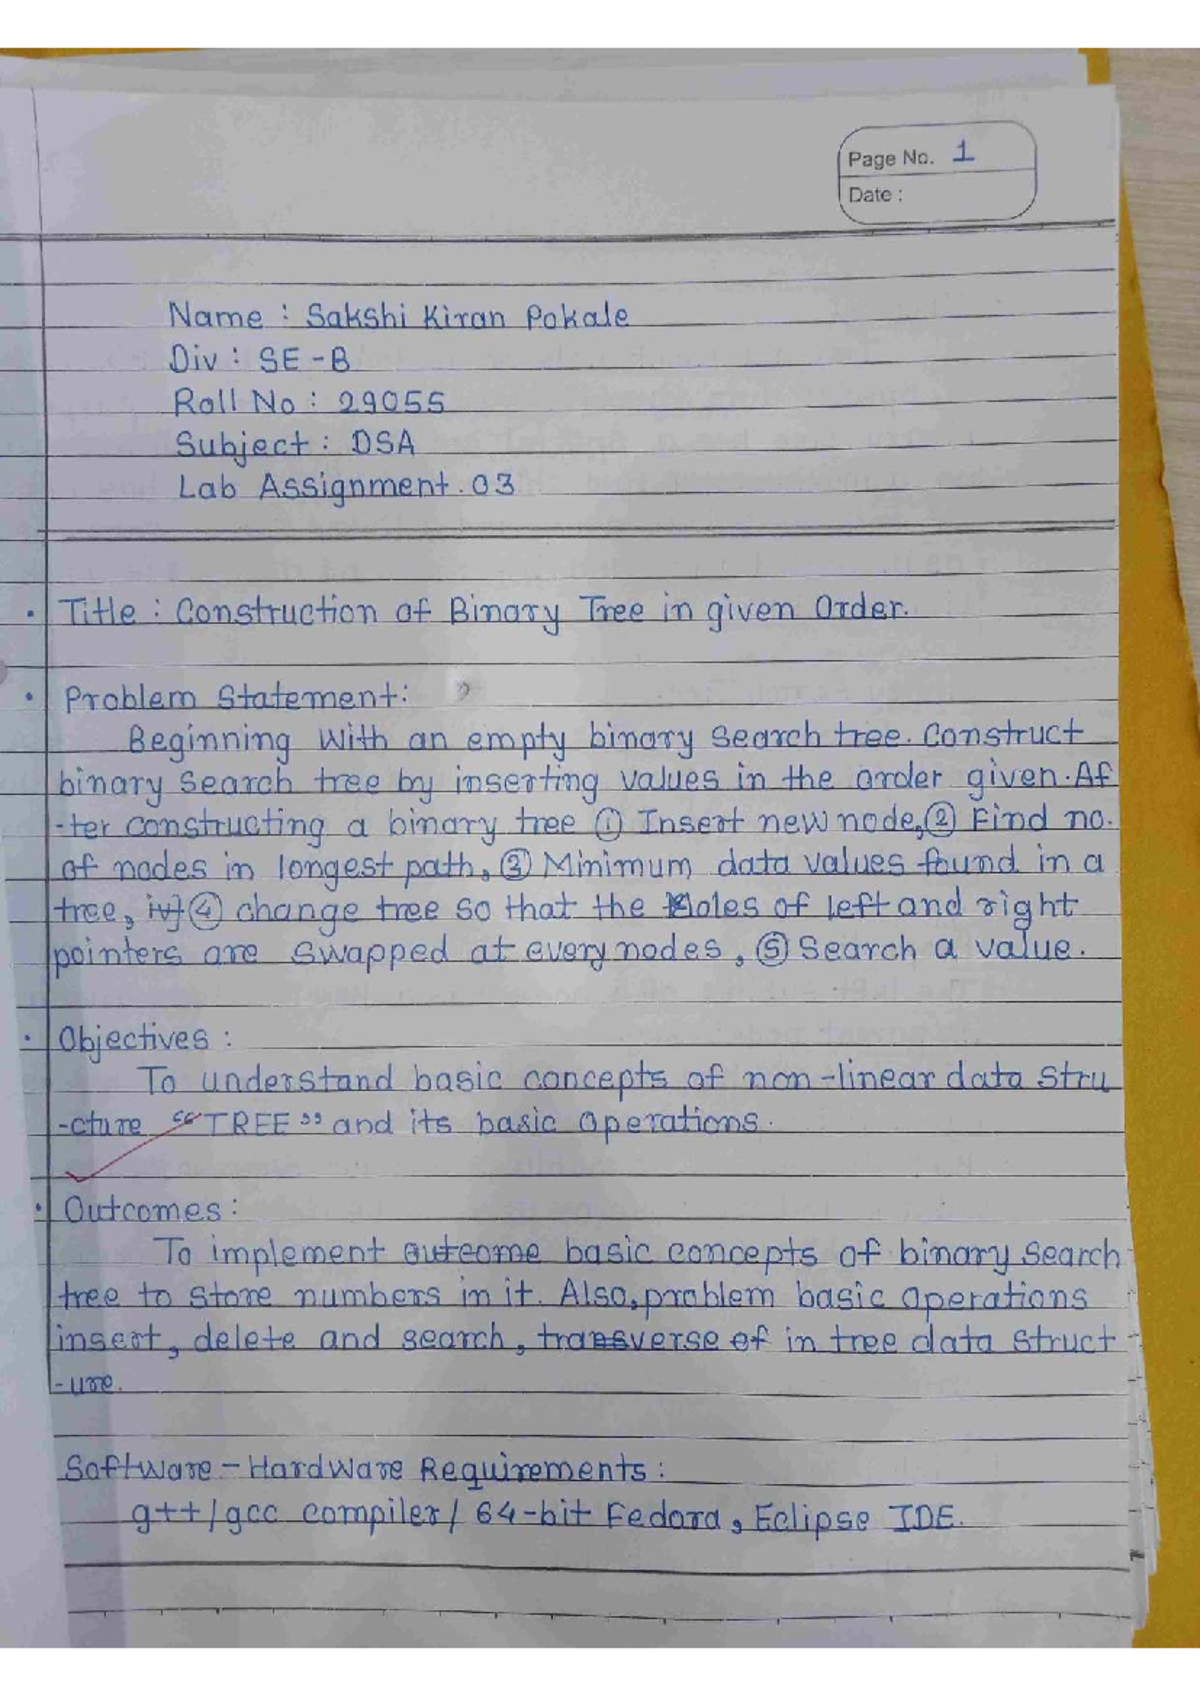 Page No. 1
Date :
Name : Sakshi Kiran Pokale
Div : SE - B
Roll No : 29055
Subject : DSA
Lab Assignment . 03
• Title : Construction of Binary Tree in given Order.
• Problem Statement :
Beginning with an empty binary search tree. Construct
binary search tree by inserting values in the order given. Af
-ter constructing a binary tree ① Insert new node, ② Find no.
of nodes in longest path, ③ Minimum data values found in a
tree, iv) ④ change tree so that the Roles of left and right
pointers are swapped at every nodes, ⑤ Search a value.
• Objectives :
To understand basic concepts of non-linear data stru
-cture “TREE” and its basic operations.
• Outcomes :
To implement outcome basic concepts of binary search
tree to store numbers in it. Also, problem basic operations
insert, delete and search, transverse of in tree data struct
-ure.
Software - Hardware Requirements :
g++/gcc compiler / 64-bit Fedora, Eclipse IDE.